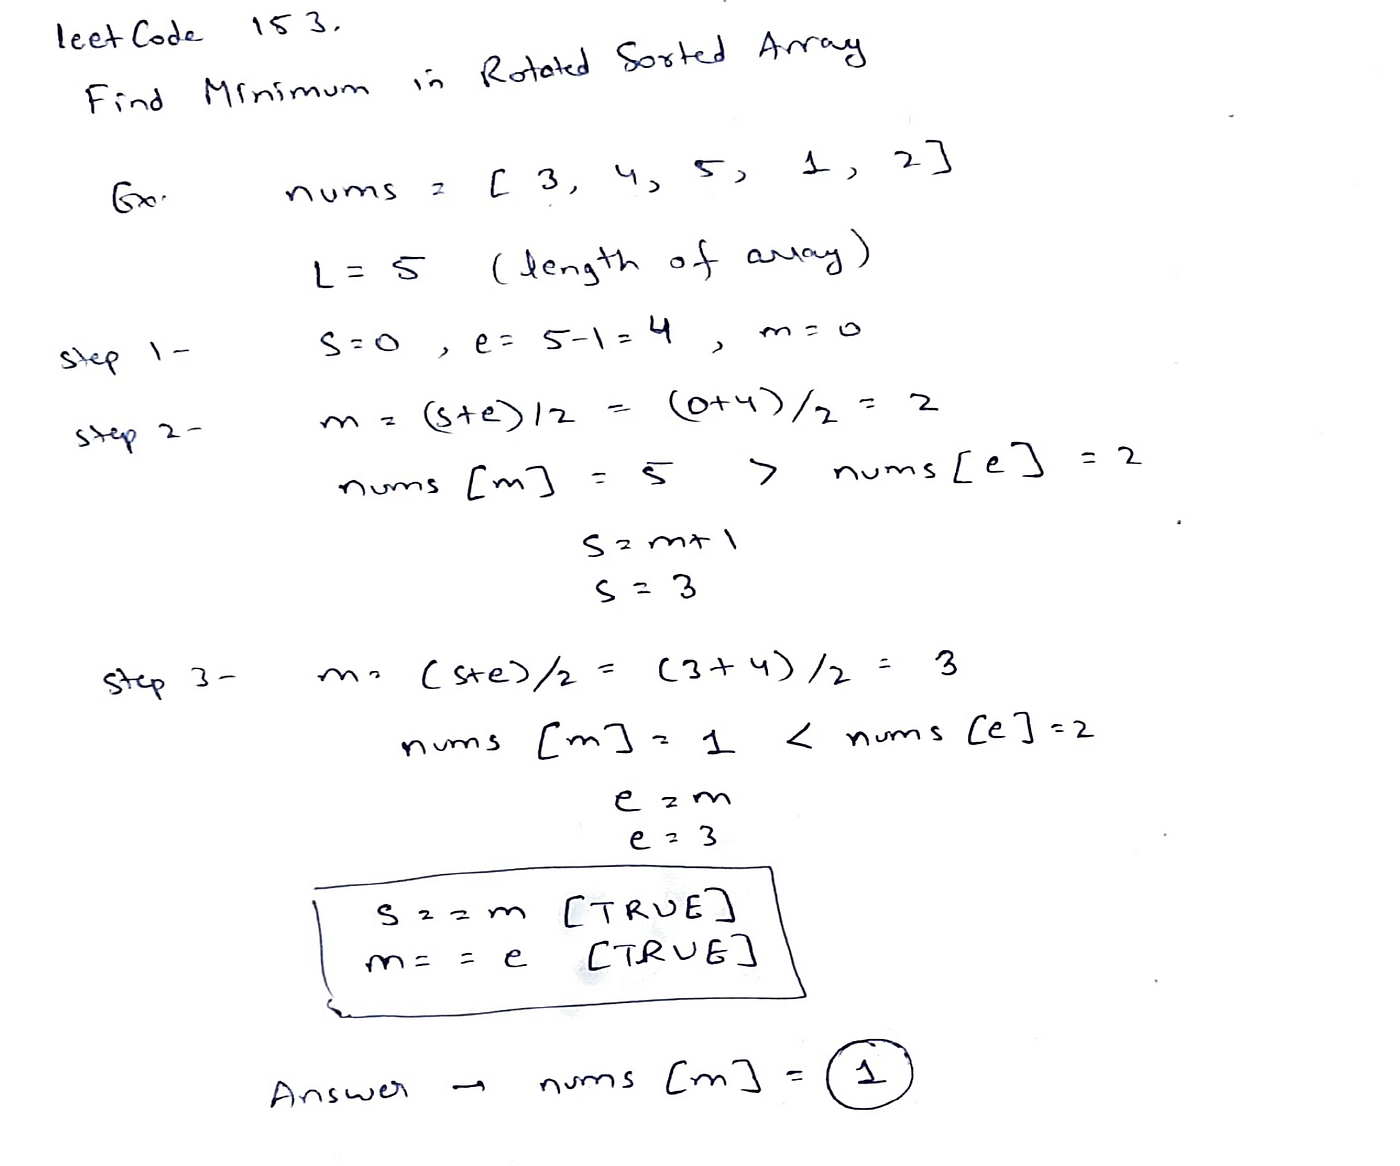 leetCode 153.
Find Minimum in Rotated Sorted Array
Ex. nums = [ 3, 4, 5, 1, 2]
L = 5 (length of array)
step 1- S=0, e= 5-1=4, m=0
step 2- m = (s+e)/2 = (0+4)/2 = 2
nums [m] = 5 > nums [e] = 2
S = m+1
S = 3
step 3- m= (s+e)/2 = (3+4)/2 = 3
nums [m] = 1 < nums [e] = 2
e = m
e = 3
S == m [TRUE]
m == e [TRUE]
Answer → nums [m] = 1